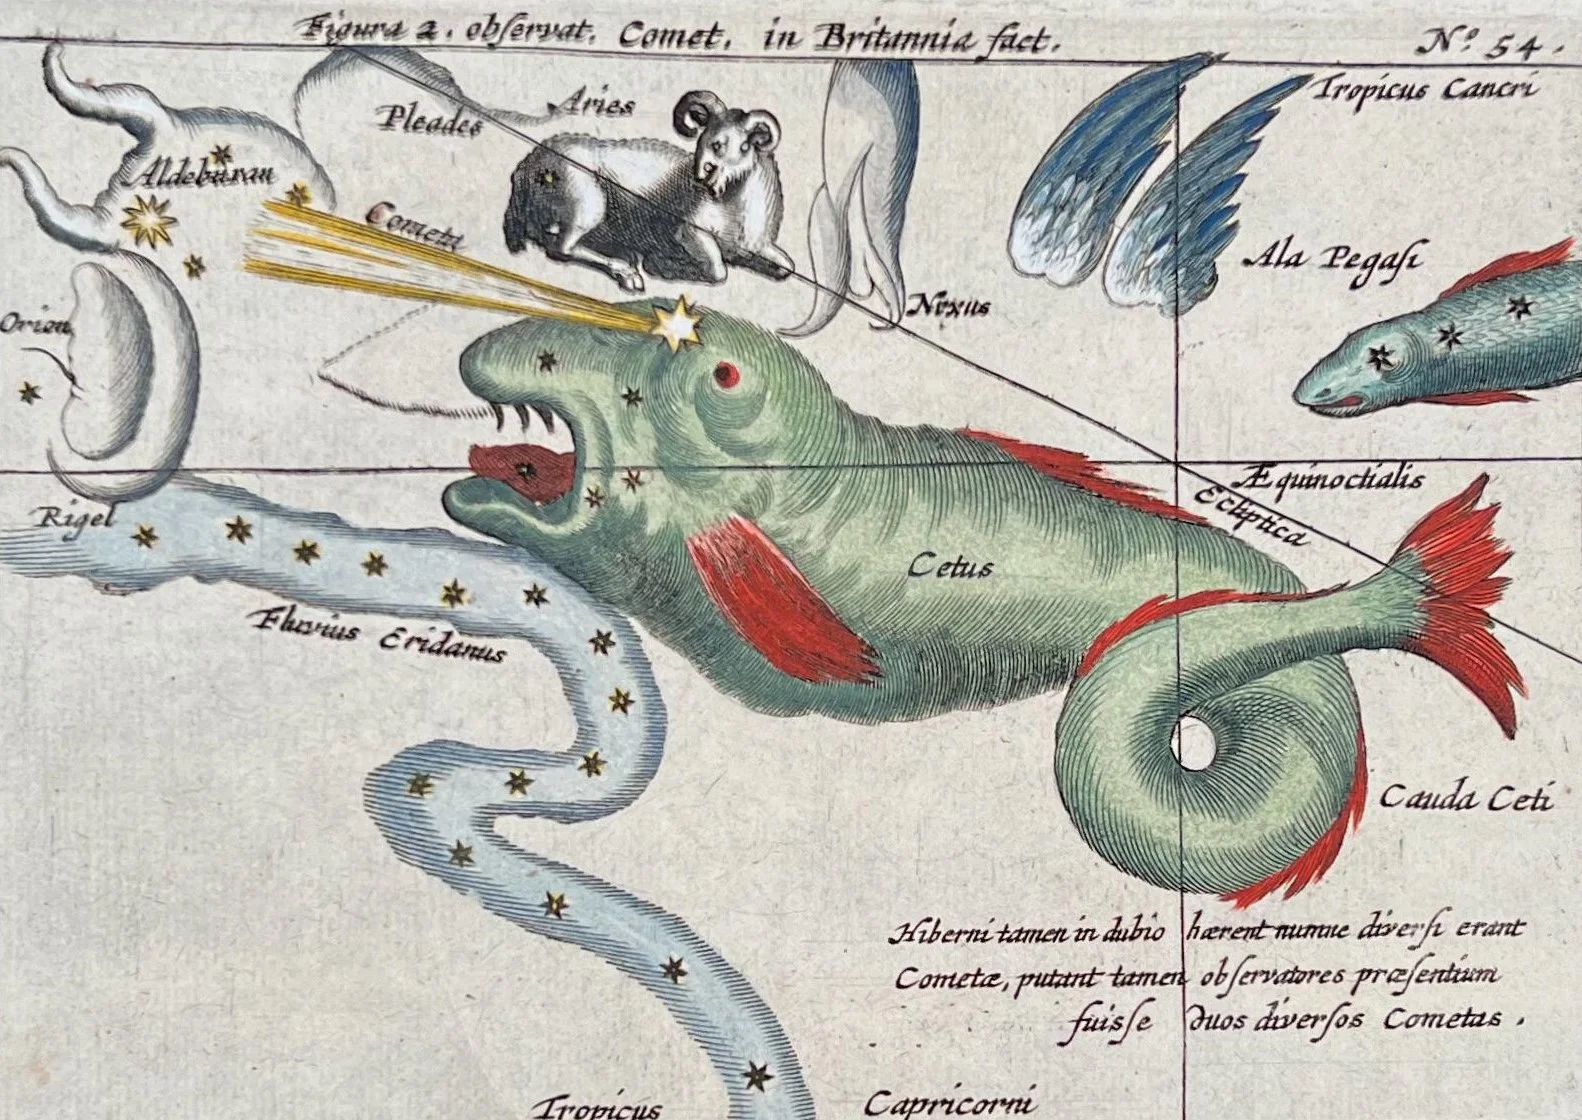 Figura 2. obſervat. Comet. in Britannia fact.
Nº 54.
Tropicus Cancri
Pleades
Aries
Aldeburan
Cometa
Ala Pegaſi
Nexus
Orion
Æquinoctialis
Ecliptica
Rigel
Cetus
Fluvius Eridanus
Cauda Ceti
Hiberni tamen in dubio hærent numne diverſi erant
Cometæ, putant tamen obſervatores præſentium
fuisſe duos diverſos Cometas.
Tropicus Capricorni